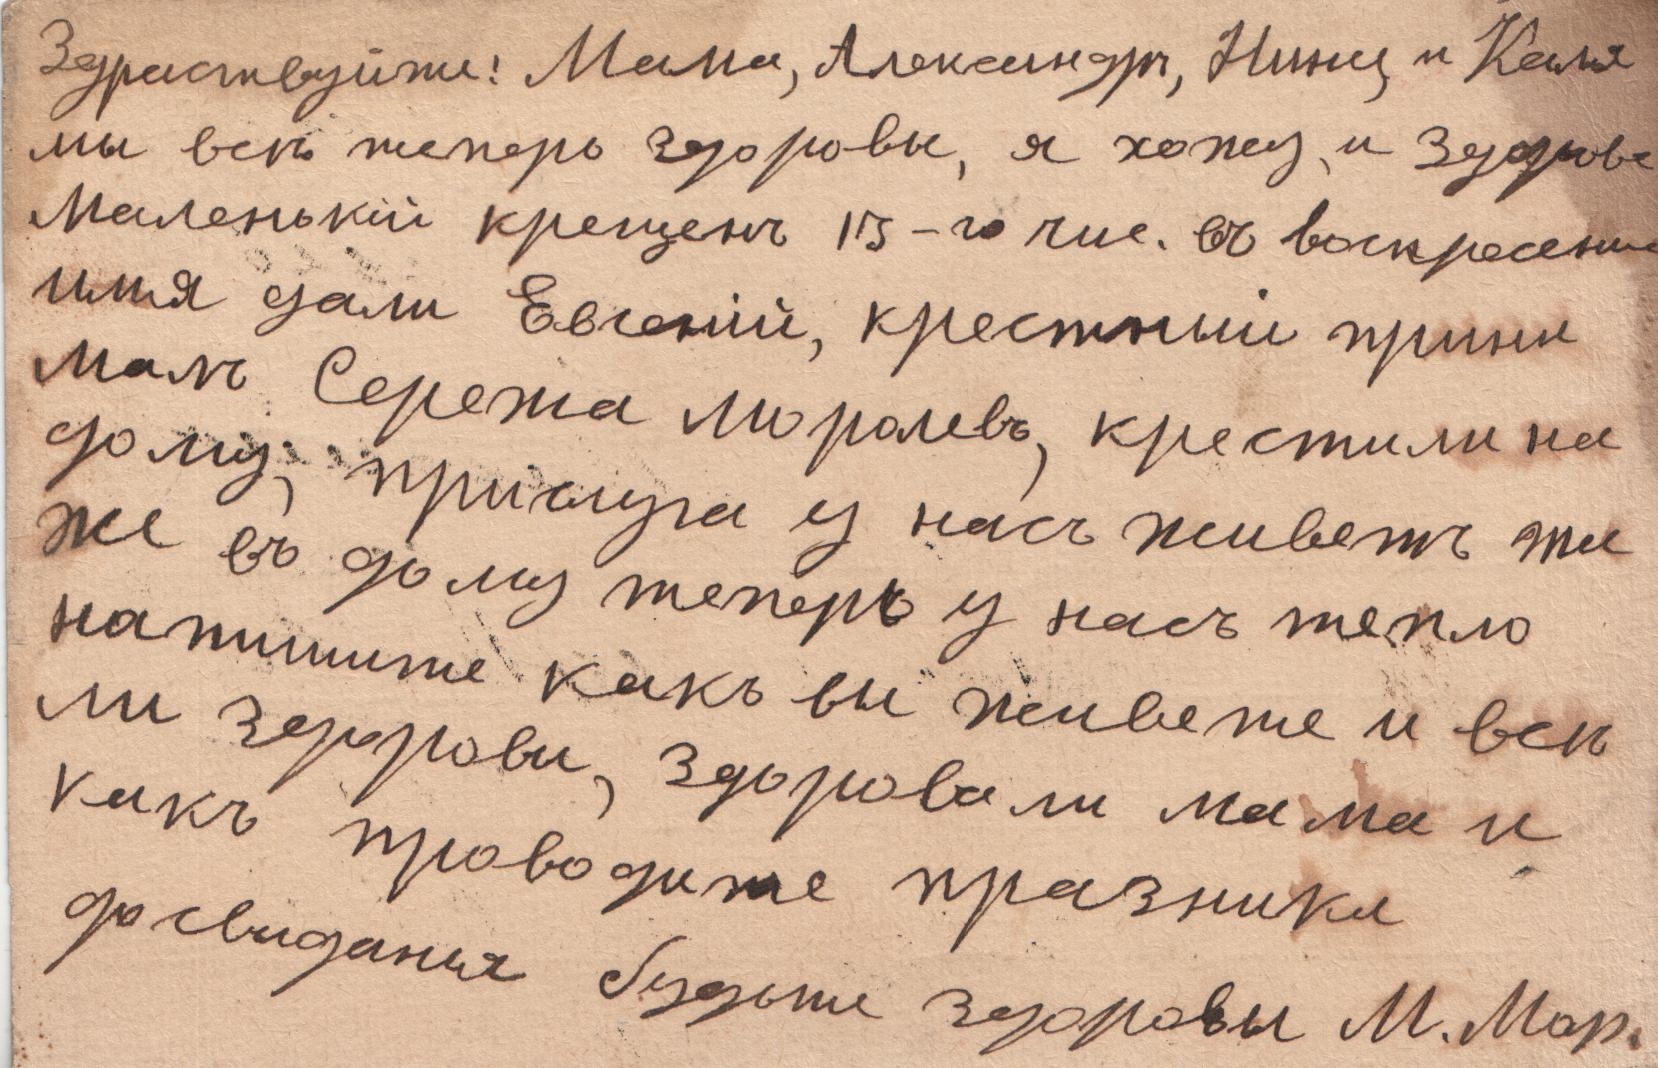 Здраствуйте! Мама, Александръ, Нина, и Каля
мы всѣ теперь здоровы, я хожу, и здорова
Маленькій крещенъ 15-го чис. въ воскресенье
имя дали Евгеній, крестный прини
малъ Сережа Моролевъ, крестили на
дому, прислуга у насъ живетъ та
же въ дому теперь у насъ тепло
напишите какъ вы живете и всѣ
ли здоровы, здорова ли мама и
какъ проводите празники
досвиданья будьте здоровы М. Мор.